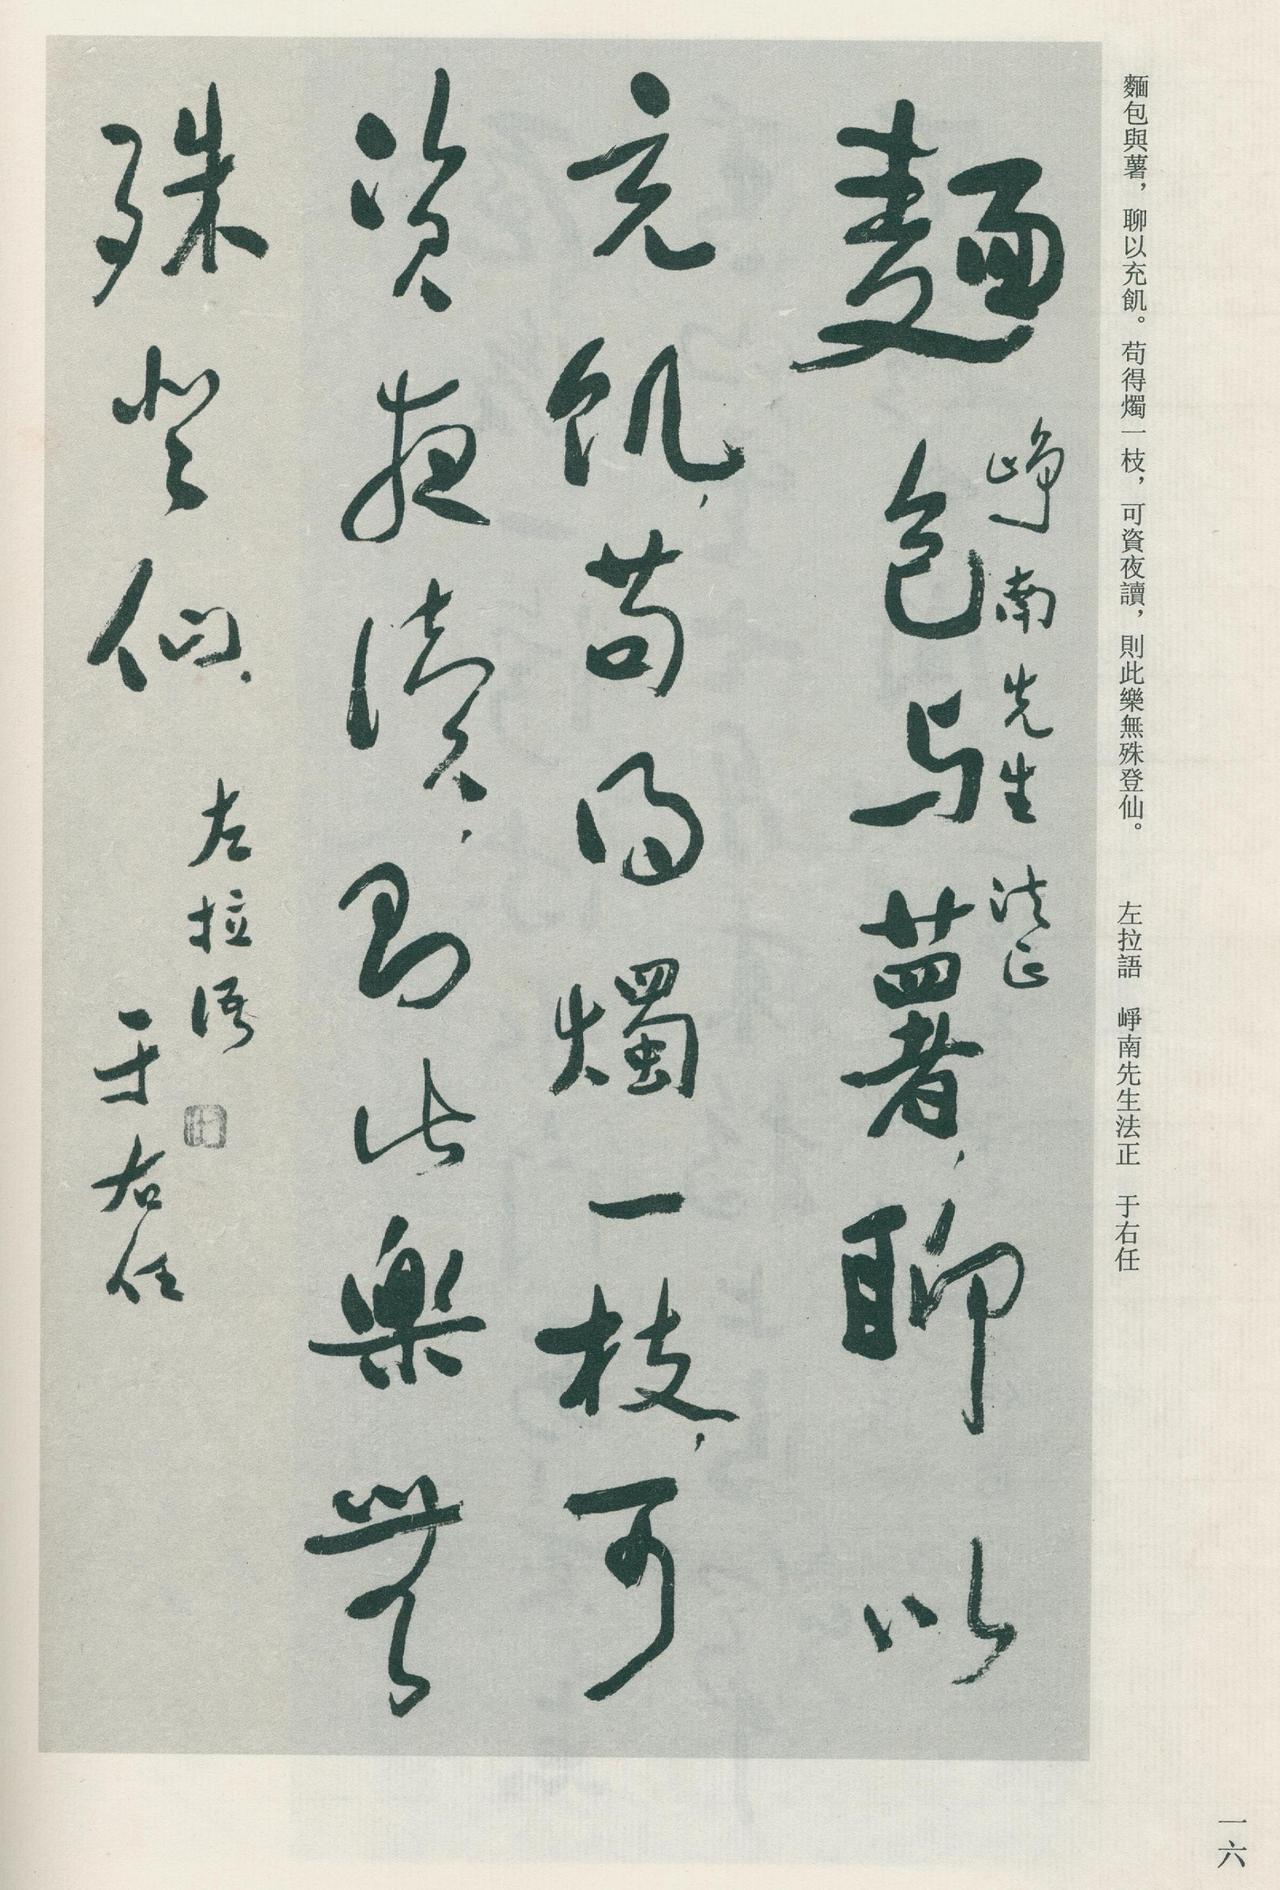 麵包與薯，聊以充飢。苟得燭一枝，可資夜讀，則此樂無殊登仙。　左拉語　崢南先生法正　于右任
崢南先生法正
麵包与薯，聊以
充飢，苟得燭一枝，可
資夜讀，則此樂無
殊登仙．
左拉語
于右任
一六